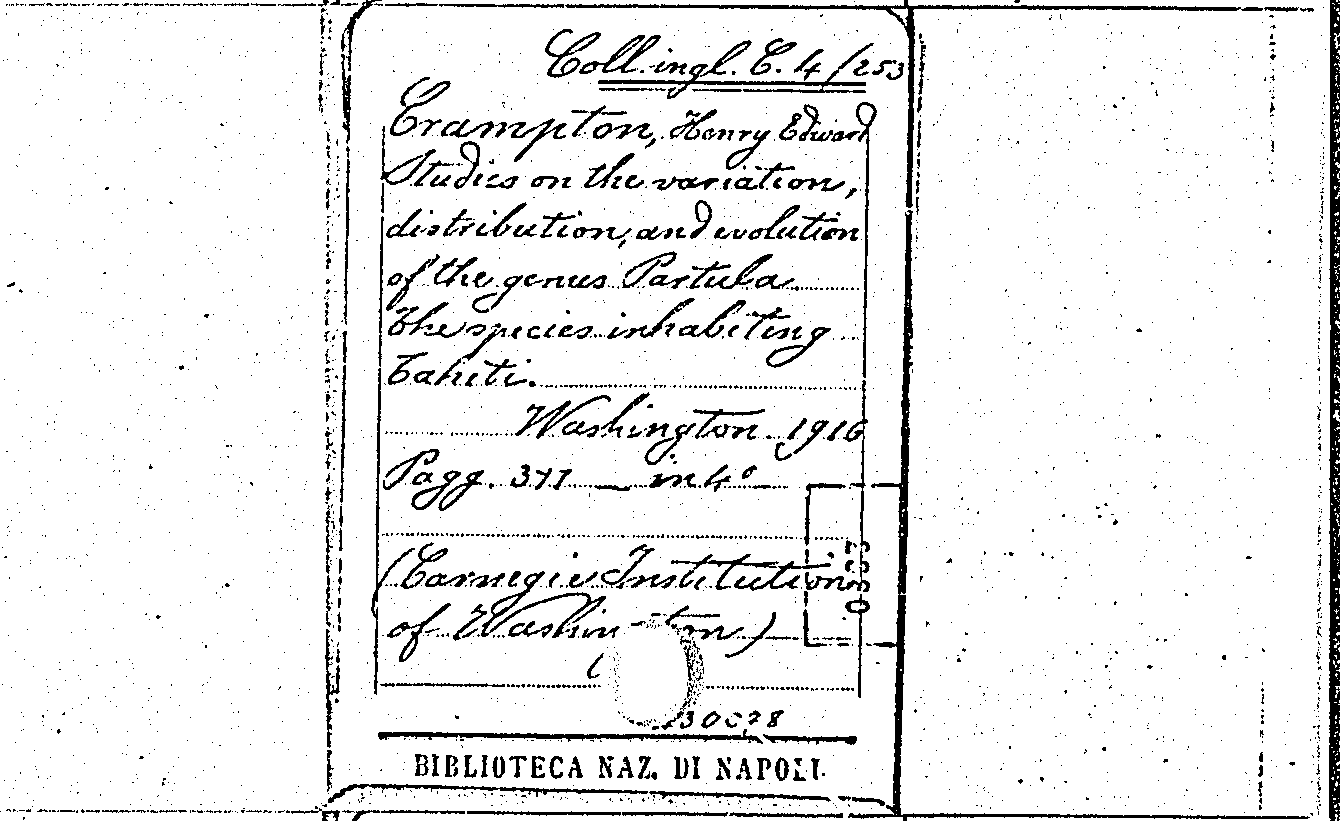 Coll. ingl. C. 4/253
Crampton, Henry Edward
Studies on the variation,
distribution, and evolution
of the genus Partula
The species inhabiting
Tahiti.
Washington 1916
Pagg. in 4°
(Carnegie Institution
of Washington)
BIBLIOTECA NAZ. DI NAPOLI